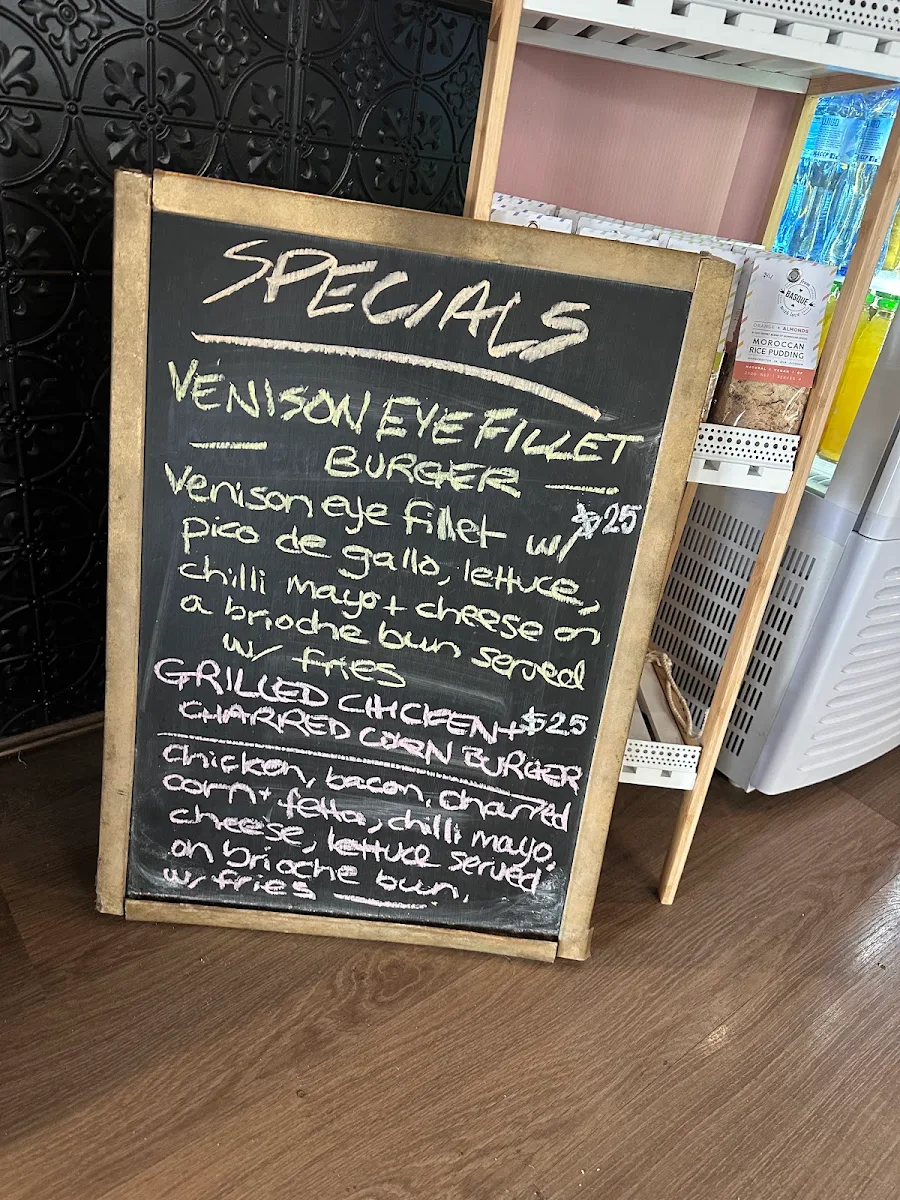 SPECIALS
VENISON EYE FILLET
BURGER
$25
Venison eye fillet w/
pico de gallo, lettuce,
chilli mayo + cheese on
a brioche bun served
w/ fries
GRILLED CHICKEN + $25
CHARRED CORN BURGER
chicken, bacon, charred
corn + fetta, chilli mayo,
cheese, lettuce served
on brioche bun,
w/ fries
BASQUE
ORANGE + ALMONDS
MOROCCAN
RICE PUDDING